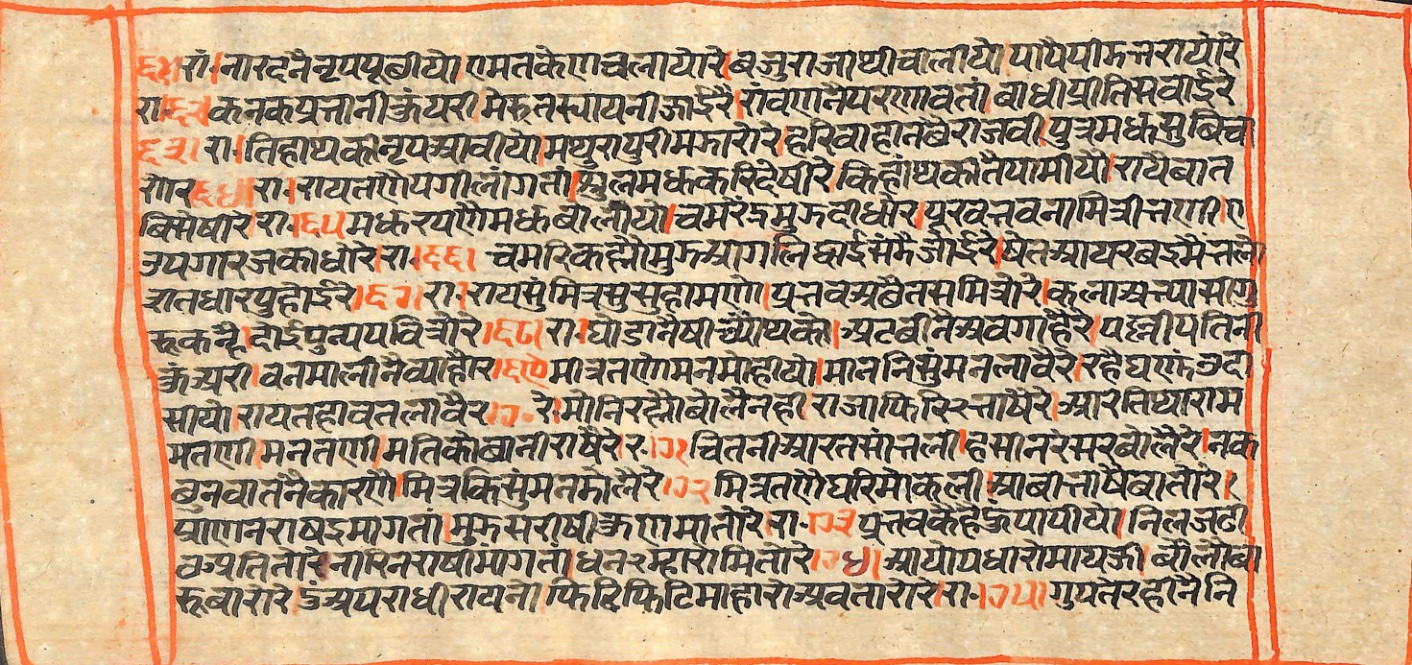 ६२। रां। नारदनै नृपपूछीयो। एमतकेणचलायोरे। बजुराजाथीचालीयो। पापैपीमत्तरायोरे
रा। ६३ कनकप्रभानीऊंपरी। मेरुतस्यापनीजाईरै। रांवणनैपरणावतां। बाधीप्रीतिसवाईरे
६३। रा। तिहाथकीनृपआवीयो। मथुरापुरीमझारोरे। हरिवाहानतबैराजवी। पुत्रमधुसुविचा
रोरे ६४। रा। रायतणैपगीलांगतां। सुलमधुकरिदेषीरे। किहांथकीतैपामीयौ। रायैबात
बिसेषीरे। रा। ६५ मधुरयणैमधुबोलीयो। चमरंद्रमुझदीधोरे। पूरवभवनामित्रीभणी। ए
उपगारजकीधोरे। रा। ६६। चमरिकह्यौमुझआगलि
रातधारपुहोईरे। ६७। रा। रायसुंमित्रसुसुहामणो। प्रभवअबैतसमित्रोरे। कलाअभ्यासीगु
रुकन्है। दोईपुन्यपवित्रोरे। ६८। रा। घोडानैषीच्योथको। अटवीनैअवगाहैरै। पल्लीपतिनी
कुंअरी। वनमालीनैव्याहैरे। ६९ मीत्रतणोमनमोहीयो। माननिसुंमनलावैरे। रहैघणुंउदा
सीयो। रायतहावतलावैरे। ७०। रे। मौनिरह्यौबोलैनही। राजाफिरिरभाषैरे। आरतिथाराम
मतणी। मनतणी। मतिकोछानीराषैरे। र। ७१ चितनीआरतसांभलो। हमीनरेसरबोलैरे। नक
बुनवातनैकारणै। मित्रकिसुंमनमेलैरे। ७२ मित्रतणैघरिमोकली। आबीभाषैबातोरे।
प्राणनराषइमागतां। मुझसरीषीकुणमातोरे। रा। ७३ प्रभवकहैहुंपापीयो। निलजठी
कप्रतितोरे। नारिनराषीमांगतां। धनरम्हारोमितोरे। ७४। आयोपधारोमायजी। बोलोबा
रुबारोरे। हुंअपराधीरायनो। फिटिफिटिमाहारोअवतारोरे। रा। ७५। गुपतेरहीनैनि